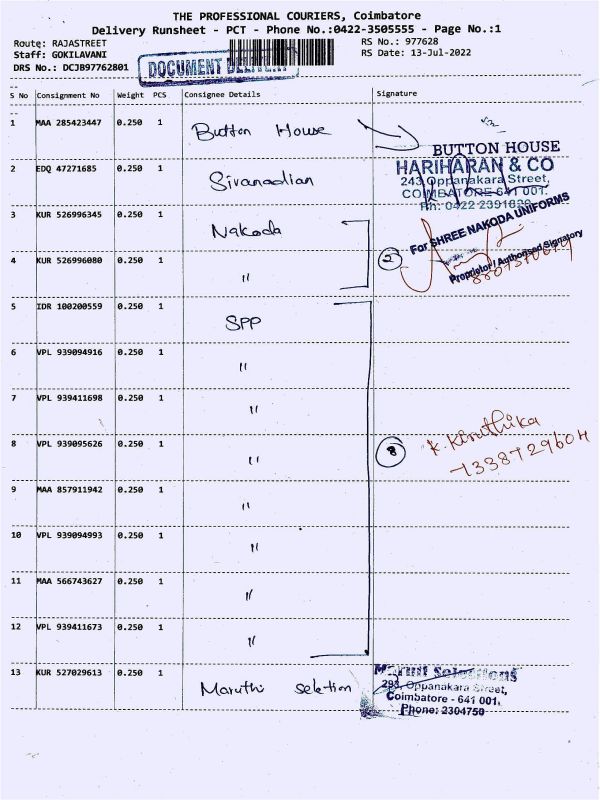 THE PROFESSIONAL COURIERS, Coimbatore
Delivery Runsheet - PCT - Phone No.:0422-3505555 - Page No.:1
Route: RAJASTREET RS No.: 977628
Staff: GOKILAVANI RS Date: 13-Jul-2022
DRS No.: DCJB97762801 DOCUMENT DELIVERY
S No Consignment No Weight PCS Consignee Details Signature
1 MAA 285423447 0.250 1 Button House
BUTTON HOUSE
2 EDQ 47271685 0.250 1 Sivanadian
HARIHARAN & CO
243, Oppanakara Street,
COIMBATORE 641 001.
Ph: 0422 2391830
3 KUR 526996345 0.250 1 Nakoda
For SHREE NAKODA UNIFORMS
4 KUR 526996080 0.250 1 " 2
Proprietor / Authorised Signatory
5 IDR 100200559 0.250 1 SPP
6 VPL 939094916 0.250 1 "
7 VPL 939411698 0.250 1 "
8 VPL 939095626 0.250 1 " 8 K. Kiruthika
7338729604
9 MAA 857911942 0.250 1 "
10 VPL 939094993 0.250 1 "
11 MAA 566743627 0.250 1 "
12 VPL 939411673 0.250 1 "
13 KUR 527029613 0.250 1 Maruthi Selection
Maruti Selections
293, Oppanakara Street,
Coimbatore - 641 001.
Phone: 2304750